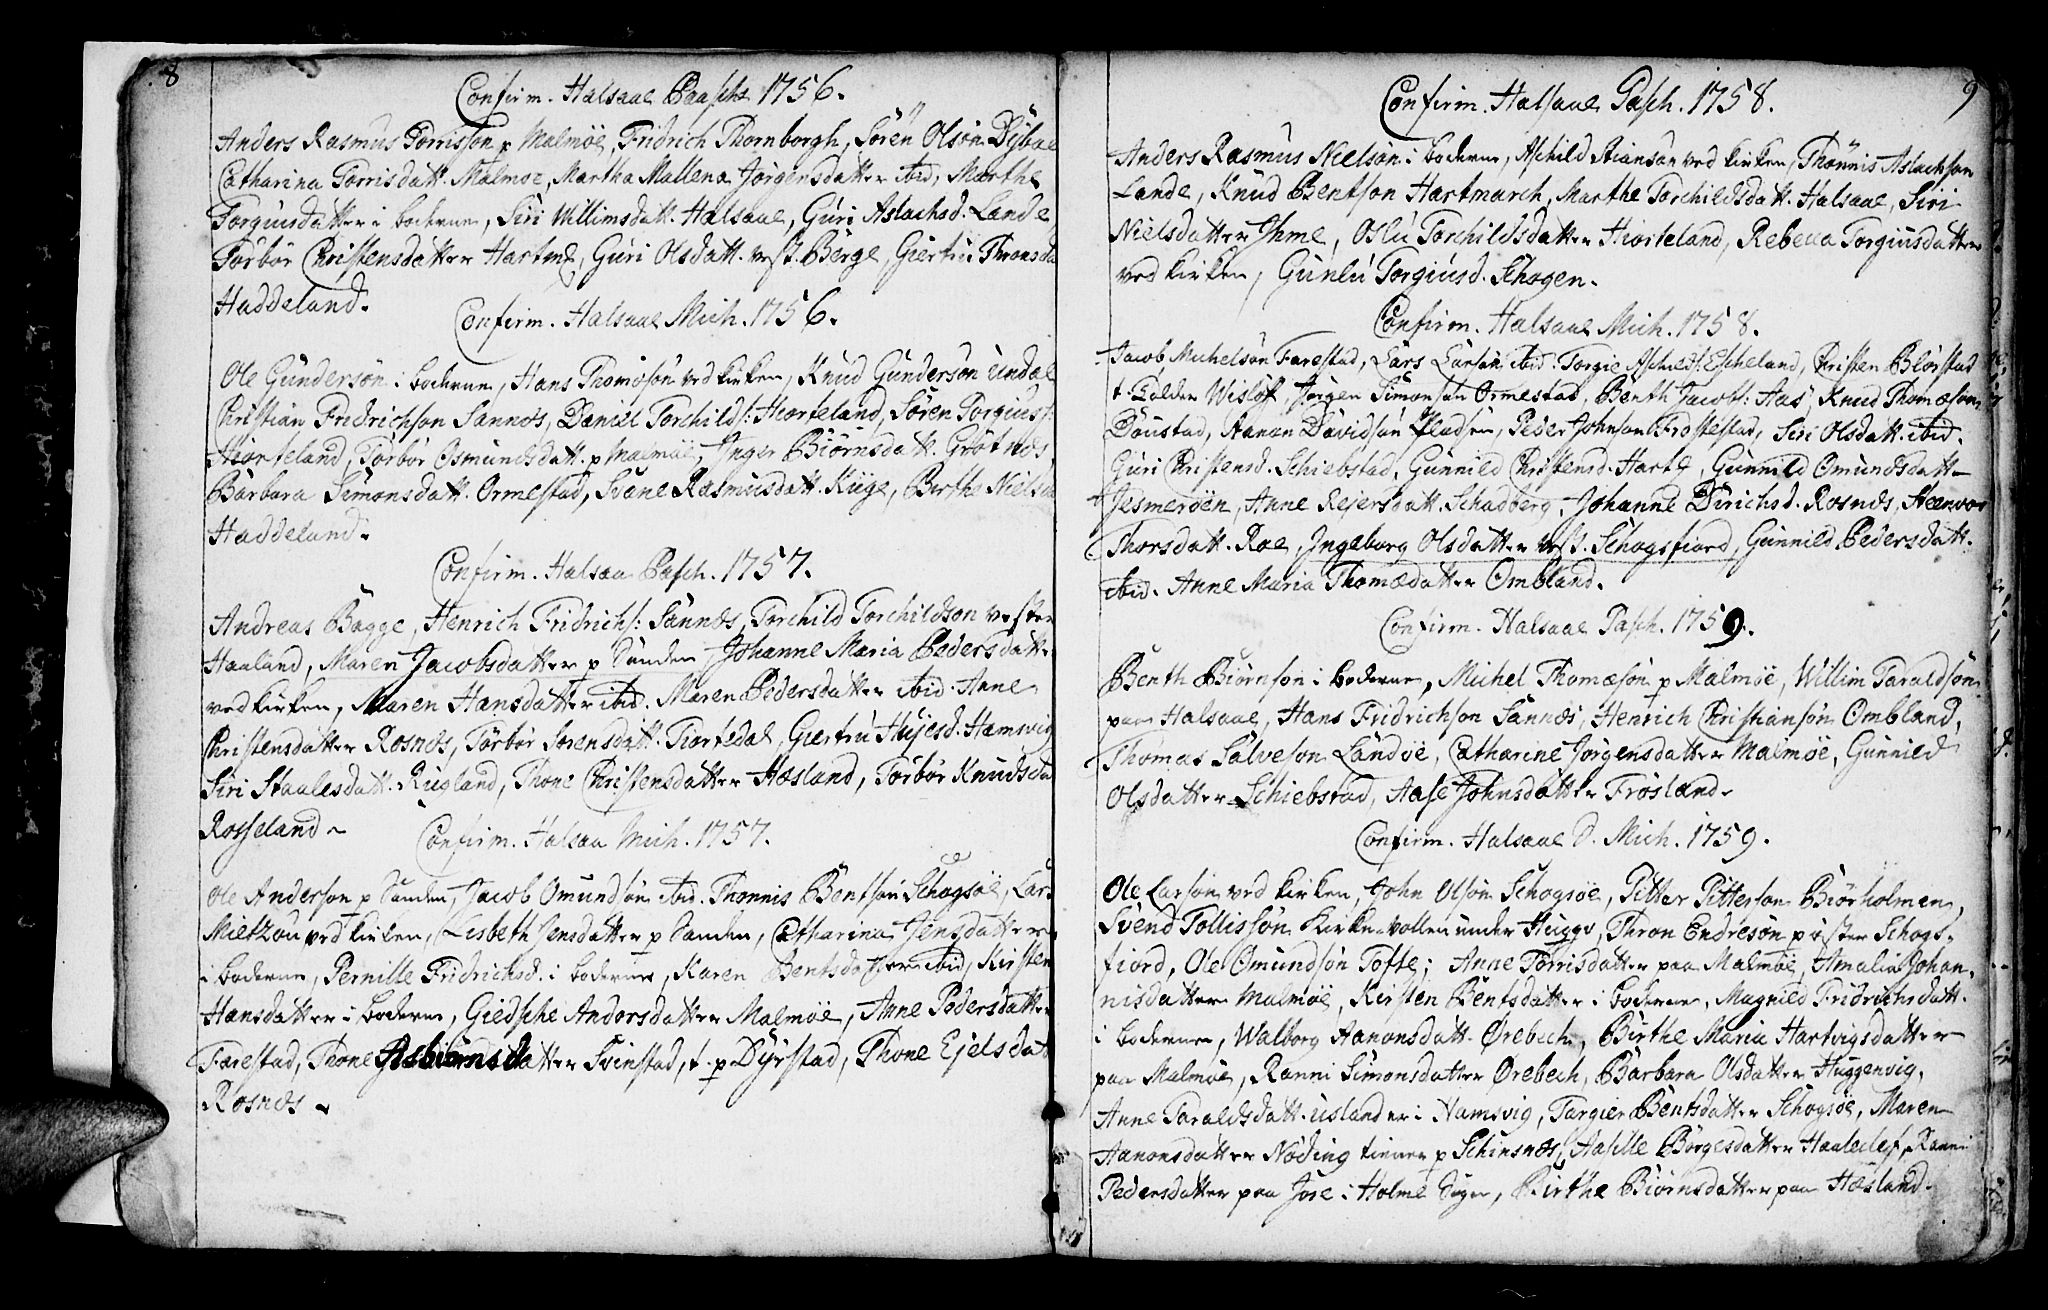 8
Confirm. Halsaae Paasche 1756.
Anders Rasmus Torrisson p Malmöe, Fridrich Thornborgh, Sören Olsön Dÿbae
Catharina Torrisdatt. Malmöe, Martha Mallena Jörgensdatter ibid, Marthe
Torgiusdatter i boderne, Siri Willimsdatt. Halsaae, Guri Aslachsd. Lande
Torbor Christensdatter Hartm, Guri Olsdatt. vest. Berge, Giertru Thronsda
Haddeland.
Confirm. Halsaae Mich. 1756.
Ole Gundersön i boderne, Hans Thomæsön ved kirken, Knud Gundersön Undal
Christian Fridrichson Sannæs, Daniel Torchilds: Hiorteland, Sören Torgiuss:
Hiorteland, Torbor Osmundsdatt. p Malmöe, Inger Biörnsdatt. Grötnæs,
Barbara Simonsdatt. Ormestad, Svane Rasmusdatt. Kuge, Berthe Nielsda
Haddeland.
Confirm. Halsaa Pasch. 1757.
Andreas Bagge, Henrich Fridrichs: Sannæs, Torchild Torchildson vester
Haaland, Maren Jacobsdatter p Sanden, Johanne Maria Pedersdatter
ved kirken, Maren Hansdatter ibid. Maren Pedersdatter ibid. Anne
Christensdatter Rosnæs, Torbor Sorensdatt. Tiortedal, Giertru Hujesd. Hamsvig
Siri Staalesdatt. Rugland, Thone Christensdatter Hæsland, Torbor Knudsda
Rosseland.
Confirm. Halsaa Mich. 1757.
Ole Anderson p Sanden, Jacob Omundsön ibid. Thonnis Bentsön Schogsöe, Lars
Mietzou ved kirken, Lisbeth Jensdatter p Sanden, Catharina Jensdatter
i boderne, Pernille Fridrichsd. i boderne, Karen Bentsdatter ibid, Kirsten
Hansdatter i boderne, Giedsche Andersdatter Malmöe, Anne Pedersdatter
Farestad, Thone Asbiörnsdatter Svinstad, t. p Dÿrstad, Thone Ejelsdat
Rosnæs.
9
Confirm. Halsaae Pasch. 1758.
Anders Rasmus Nielsön i boderne, Aschild Stiansön ved kirken, Thönnis Aslachson
Lande, Knud Bentson Hartmarch, Marthe Torchildsdatt. Halsaae, Siri
Nielsdatter Ihme, Oslu Torchildsdatter Hiorteland, Rebecca Torgiusdatter
ved kirken, Gunlu Torgiusd. Schogen.
Confirm. Halsaae Mich. 1758.
Jacob Michelsön Farestad, Lars Larsön ibid. Torgie Aschilds: Escheland, Christen Blörstad
t. Holder Wislöf, Jörgen Simonsön Ormestad, Benth Jacobs: Aas, Knud Thomæson
Döustad, Aanon Davidsön Pladsen, Peder Johnsön Frostestad, Siri Olsdatt. ibid.
Guri Christensd. Schiebstad, Gunnild Christensd. Hart, Gunnild Omundsdatt
Jesmeröen, Anne Rejersdatt. Schadberg, Johanne Dirichsd. Rosnæs, Heenvor
Thorsdatt. Roe, Ingeborg Olsdatter vest. Schogsfiord, Gunnild Pedersdatt.
ibid. Anne Maria Thomædatter Ombland.
Confirm. Halsaae Pasch. 1759.
Benth Biörnson i boderne, Michel Thomæsön p Malmöe, Willim Taraldsön
paa Halsaae, Hans Fridrichson Sannæs, Henrich Christiansön Ombland,
Thomas Salveson Landöe, Catharine Jörgensdatter Malmöe, Gunnild
Olsdatter Schiebstad, Aase Johnsdatter Frosland.
Confirm. Halsaae D. Mich. 1759.
Ole Larsön ved kirken, John Olsön Schogsöe, Pitter Pitterson Biörholmen,
Svend Tollissön Kirke-vollen under Huggv, Thron Endresön p öster Schogs-
fiord, Ole Omundsön Tofte; Anne Torrisdatter paa Malmöe, Amalia Johan-
nisdatter Malmöe, Kirsten Bentsdatter i boderne, Magnild Fridrichsdatt.
i boderne, Walborg Aanonsdatt. Ørebech, Birthe Maria Hartvigsdatter
paa Malmöe, Ranni Simonsdatter Ørebech, Barbara Olsdatter Huggenvig,
Anne Taraldsdatt. uslander i Hamsvig, Targier Bentsdatter Schogsöe, Maren
Aanonsdatter Nöding tiener p Schinsnæs, Aasille Börgesdatter Haaledef, Ranni
Pedersdatter paa Jose i Holme Sogn, Birthe Biörnsdatter paa Hæsland.